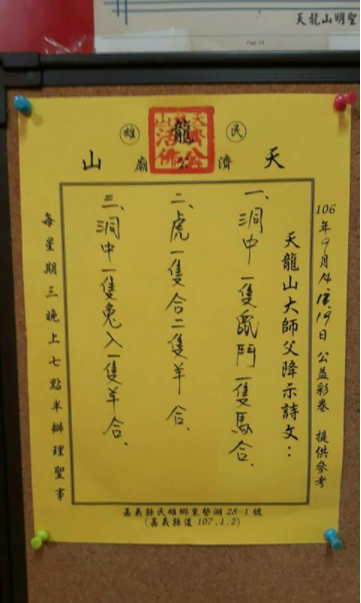 天龍山明聖
民 龍 雄
天 濟公廟 山
106年9月 19日 公益彩卷 提供參考
天龍山大師父降示詩文：
一、洞中一隻鼠鬥一隻馬合.
二、虎一隻合二隻羊合.
三、洞中一隻兔入一隻羊合.
每星期三晚上七點半辦理聖事
嘉義縣民雄鄉東勢湖 28-1 號
(嘉義縣道 107.1.2)